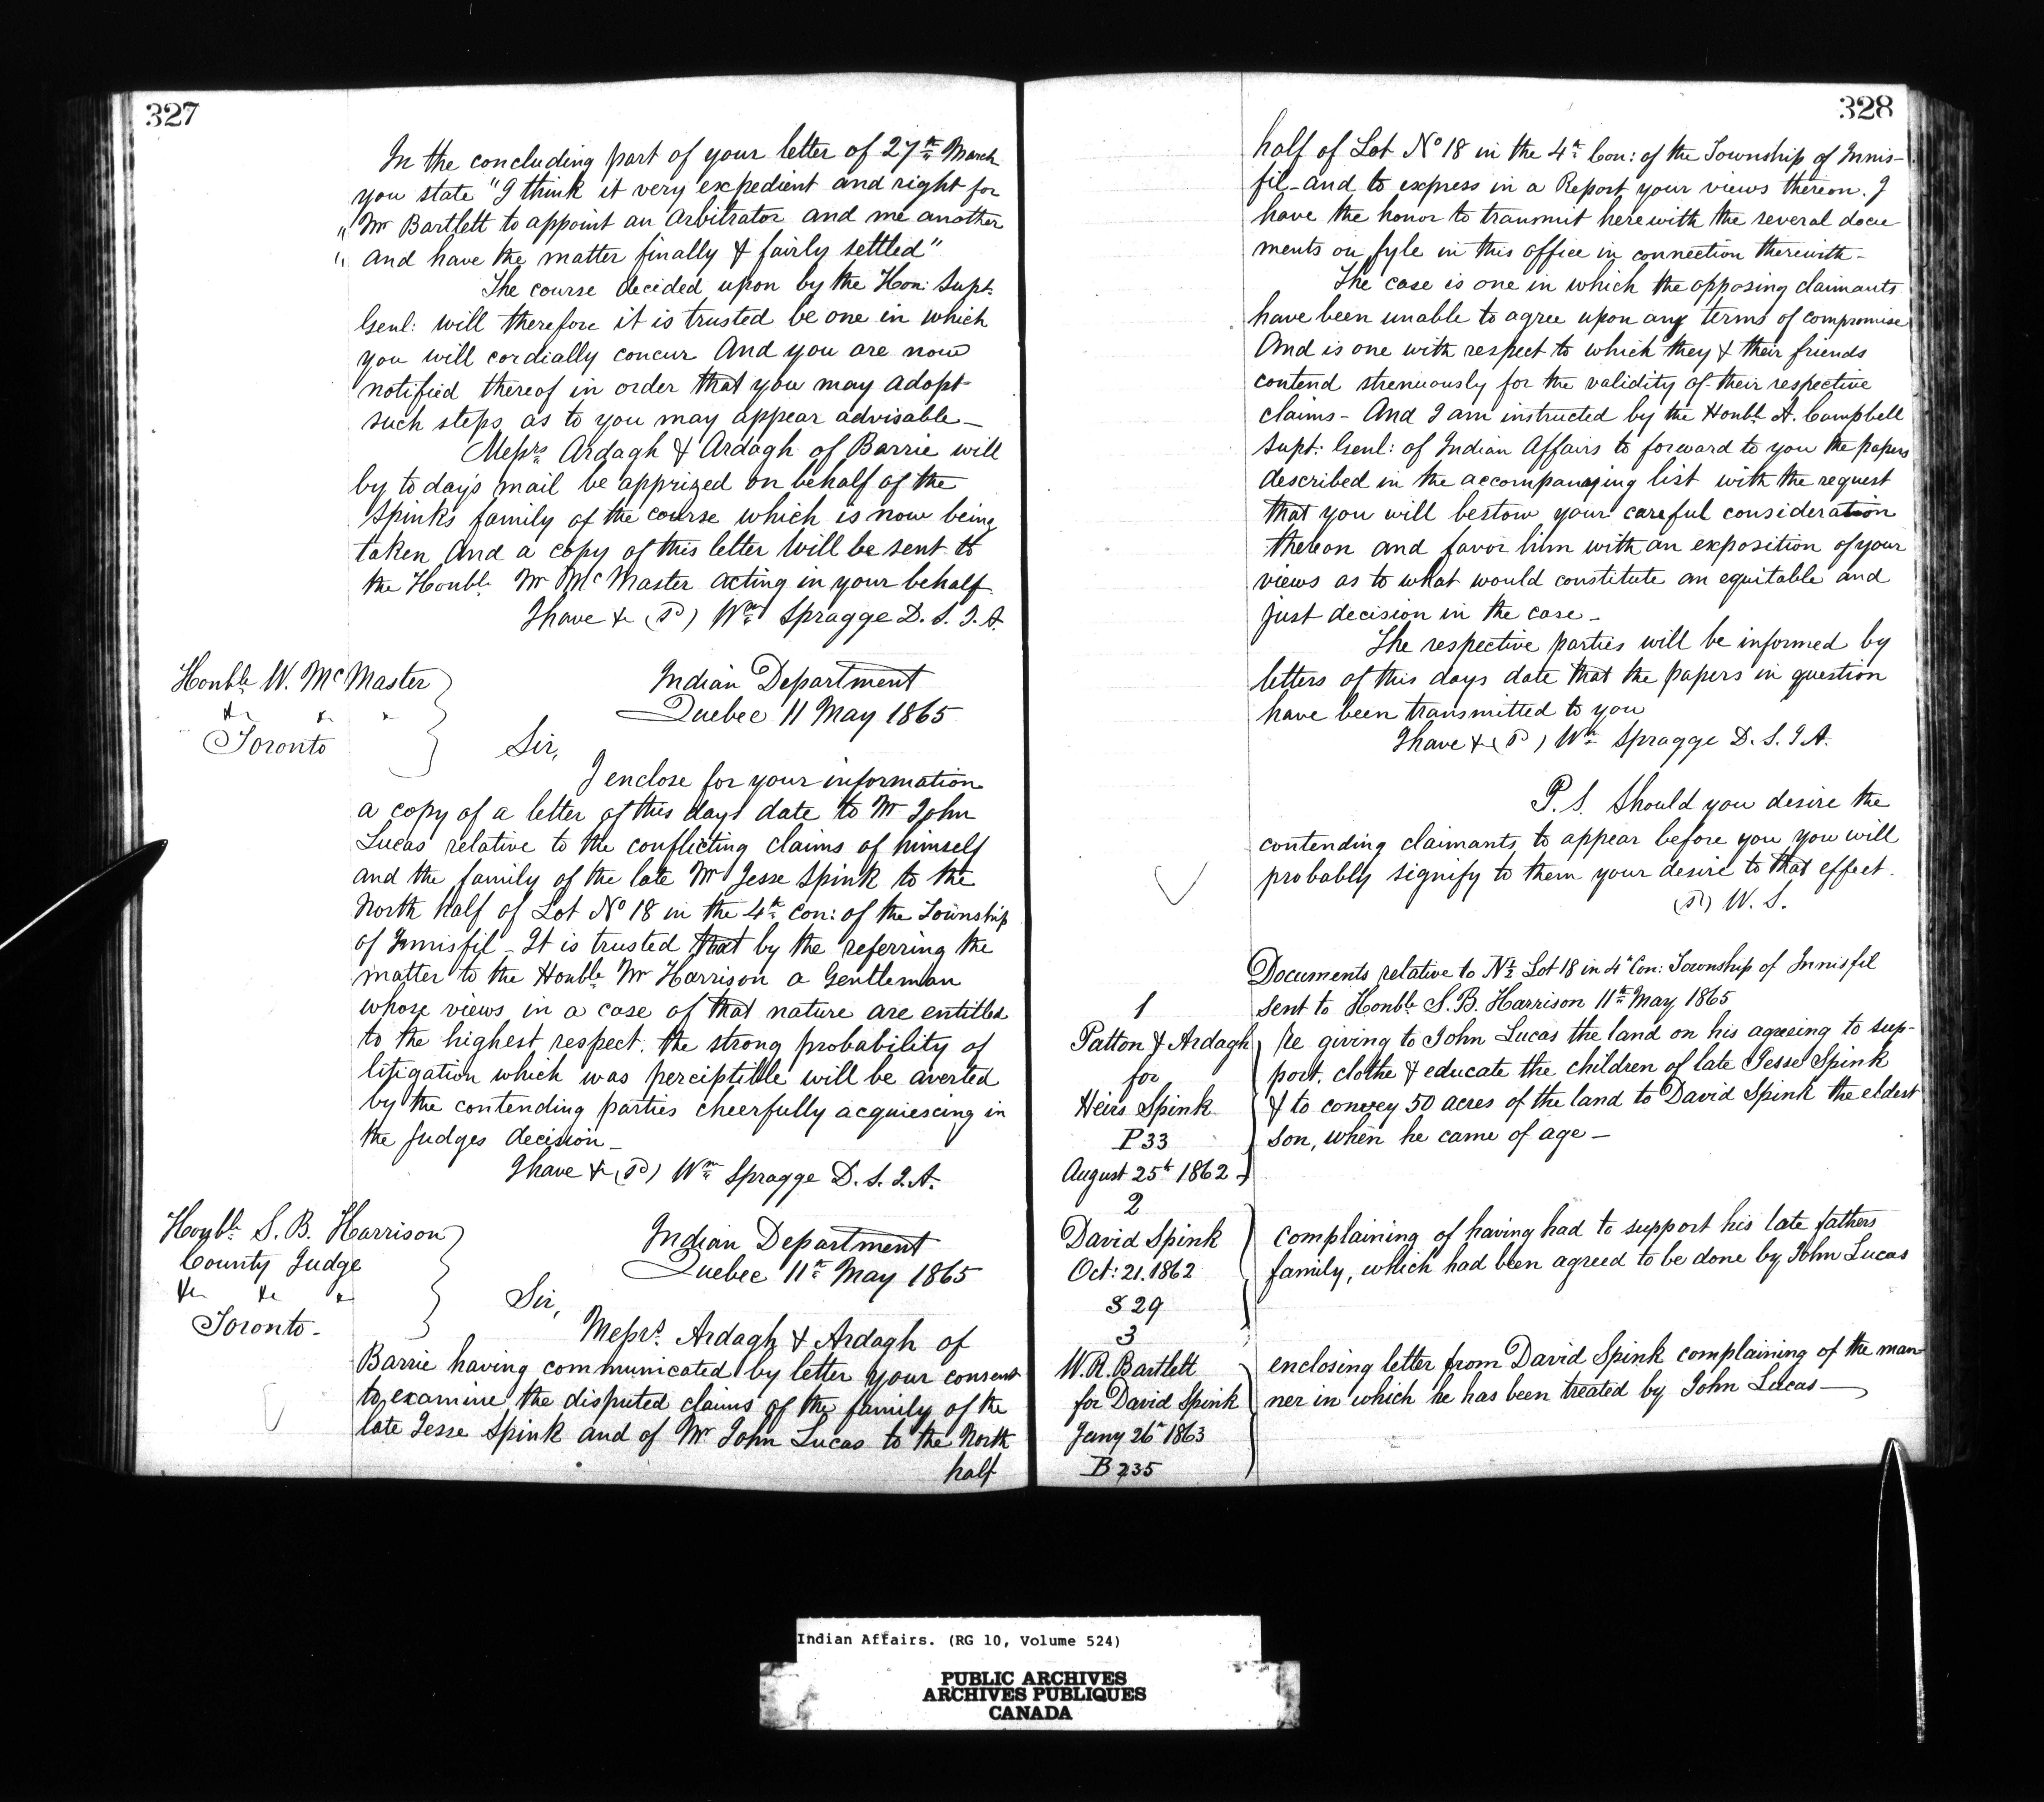 327
In the concluding part of your letter of 27th March
you state "I think it very expedient and right for
" Mr Bartlett to appoint an Arbitrator and me another
" and have the matter finally & fairly settled"
The course decided upon by the Hon: Supt.
Genl: will therefore it is trusted be one in which
you will cordially concur And you are now
notified thereof in order that you may adopt
such steps as to you may appear advisable_
Messrs Ardagh & Ardagh of Barrie will
by to days mail be apprized on behalf of the
Spinks family of the course which is now being
taken And a copy of this letter will be sent to
the Honble Mr McMaster acting in your behalf
I have &c (Sd) Wm Spragge D.S.I.A.
Honble W. McMaster
&c &c "
Toronto
Indian Department
Quebec 11 May 1865
Sir,
I enclose for your information
a copy of a letter of this days date to Mr John
Lucas relative to the conflicting claims of himself
and the family of the late Mr Jesse Spink to the
North half of Lot No 18 in the 4th Con: of the Township
of Innisfil_ It is trusted that by the referring the
matter to the Honble Mr Harrison a Gentleman
whose views in a case of that nature are entitled
to the highest respect. the strong probability of
litigation which was perciptible will be averted
by the contending parties cheerfully acquiescing in
the Judges decision_
I have &c (Sd) Wm Spragge D.S.I.A.
Honble S. B. Harrison
County Judge
&c &c &c
Toronto-
Indian Department
Quebec 11th May 1865
Sir,
Messrs. Ardagh & Ardagh of
Barrie having communicated by letter your consent
to examine the disputed claims of the family of the
late Jesse Spink and of Mr John Lucas to the North
half
328
half of Lot No 18 in the 4th Con: of the Township of Innis-
fil_ and to express in a Report your views thereon. I
have the honor to transmit herewith the several docu
ments on fyle in this office in connection therewith_
The case is one in which the opposing claimants
have been unable to agree upon any terms of compromise
And is one with respect to which they & their friends
contend strenuously for the validity of their respective
claims- And I am instructed by the Honble A. Campbell
Supt: Genl: of Indian Affairs to forward to you the papers
described in the accompanying list with the request
that you will bestow your careful consideration
thereon and favor him with an exposition of your
views as to what would constitute an equitable and
just decision in the case_
The respective parties will be informed by
letters of this days date that the papers in question
have been transmitted to you
I have &c (Sd) Wm Spragge D.S.I.A.
P.S. Should you desire the
contending claimants to appear before you you will
probably signify to them your desire to that effect.
(Sd) W. S.
Documents relative to N½ Lot 18 in 4th Con: Township of Innisfil
sent to Honble S. B. Harrison 11th May 1865
1
Patton & Ardagh
for
Heirs Spink
P 33
August 25t 1862
Re giving to John Lucas the land on his agreeing to sup-
port. clothe & educate the children of late Jesse Spink
& to convey 50 acres of the land to David Spink the eldest
son, when he came of age_
2
David Spink
Oct: 21. 1862
S 29
complaining of having had to support his late fathers
family, which had been agreed to be done by John Lucas
3
W. R. Bartlett
for David Spink
Jany 26th 1863
B 235
enclosing letter from David Spink complaining of the man
ner in which he has been treated by John Lucas_
Indian Affairs. (RG 10, Volume 524)
PUBLIC ARCHIVES
ARCHIVES PUBLIQUES
CANADA